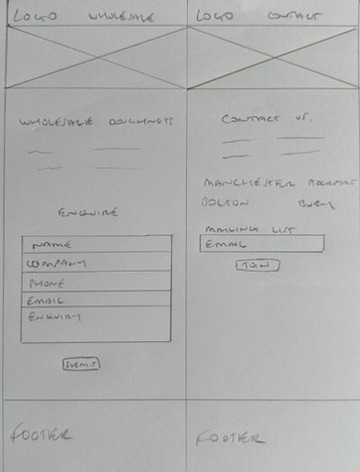 LOGO WHOLESALE
WHOLESALE DOUGHNUTS
ENQUIRE
NAME
COMPANY
PHONE
EMAIL
ENQUIRY
SUBMIT
FOOTER
LOGO CONTACT
CONTACT US.
MANCHESTER STOCKPORT
BOLTON BURY
MAILING LIST
EMAIL
JOIN
FOOTER